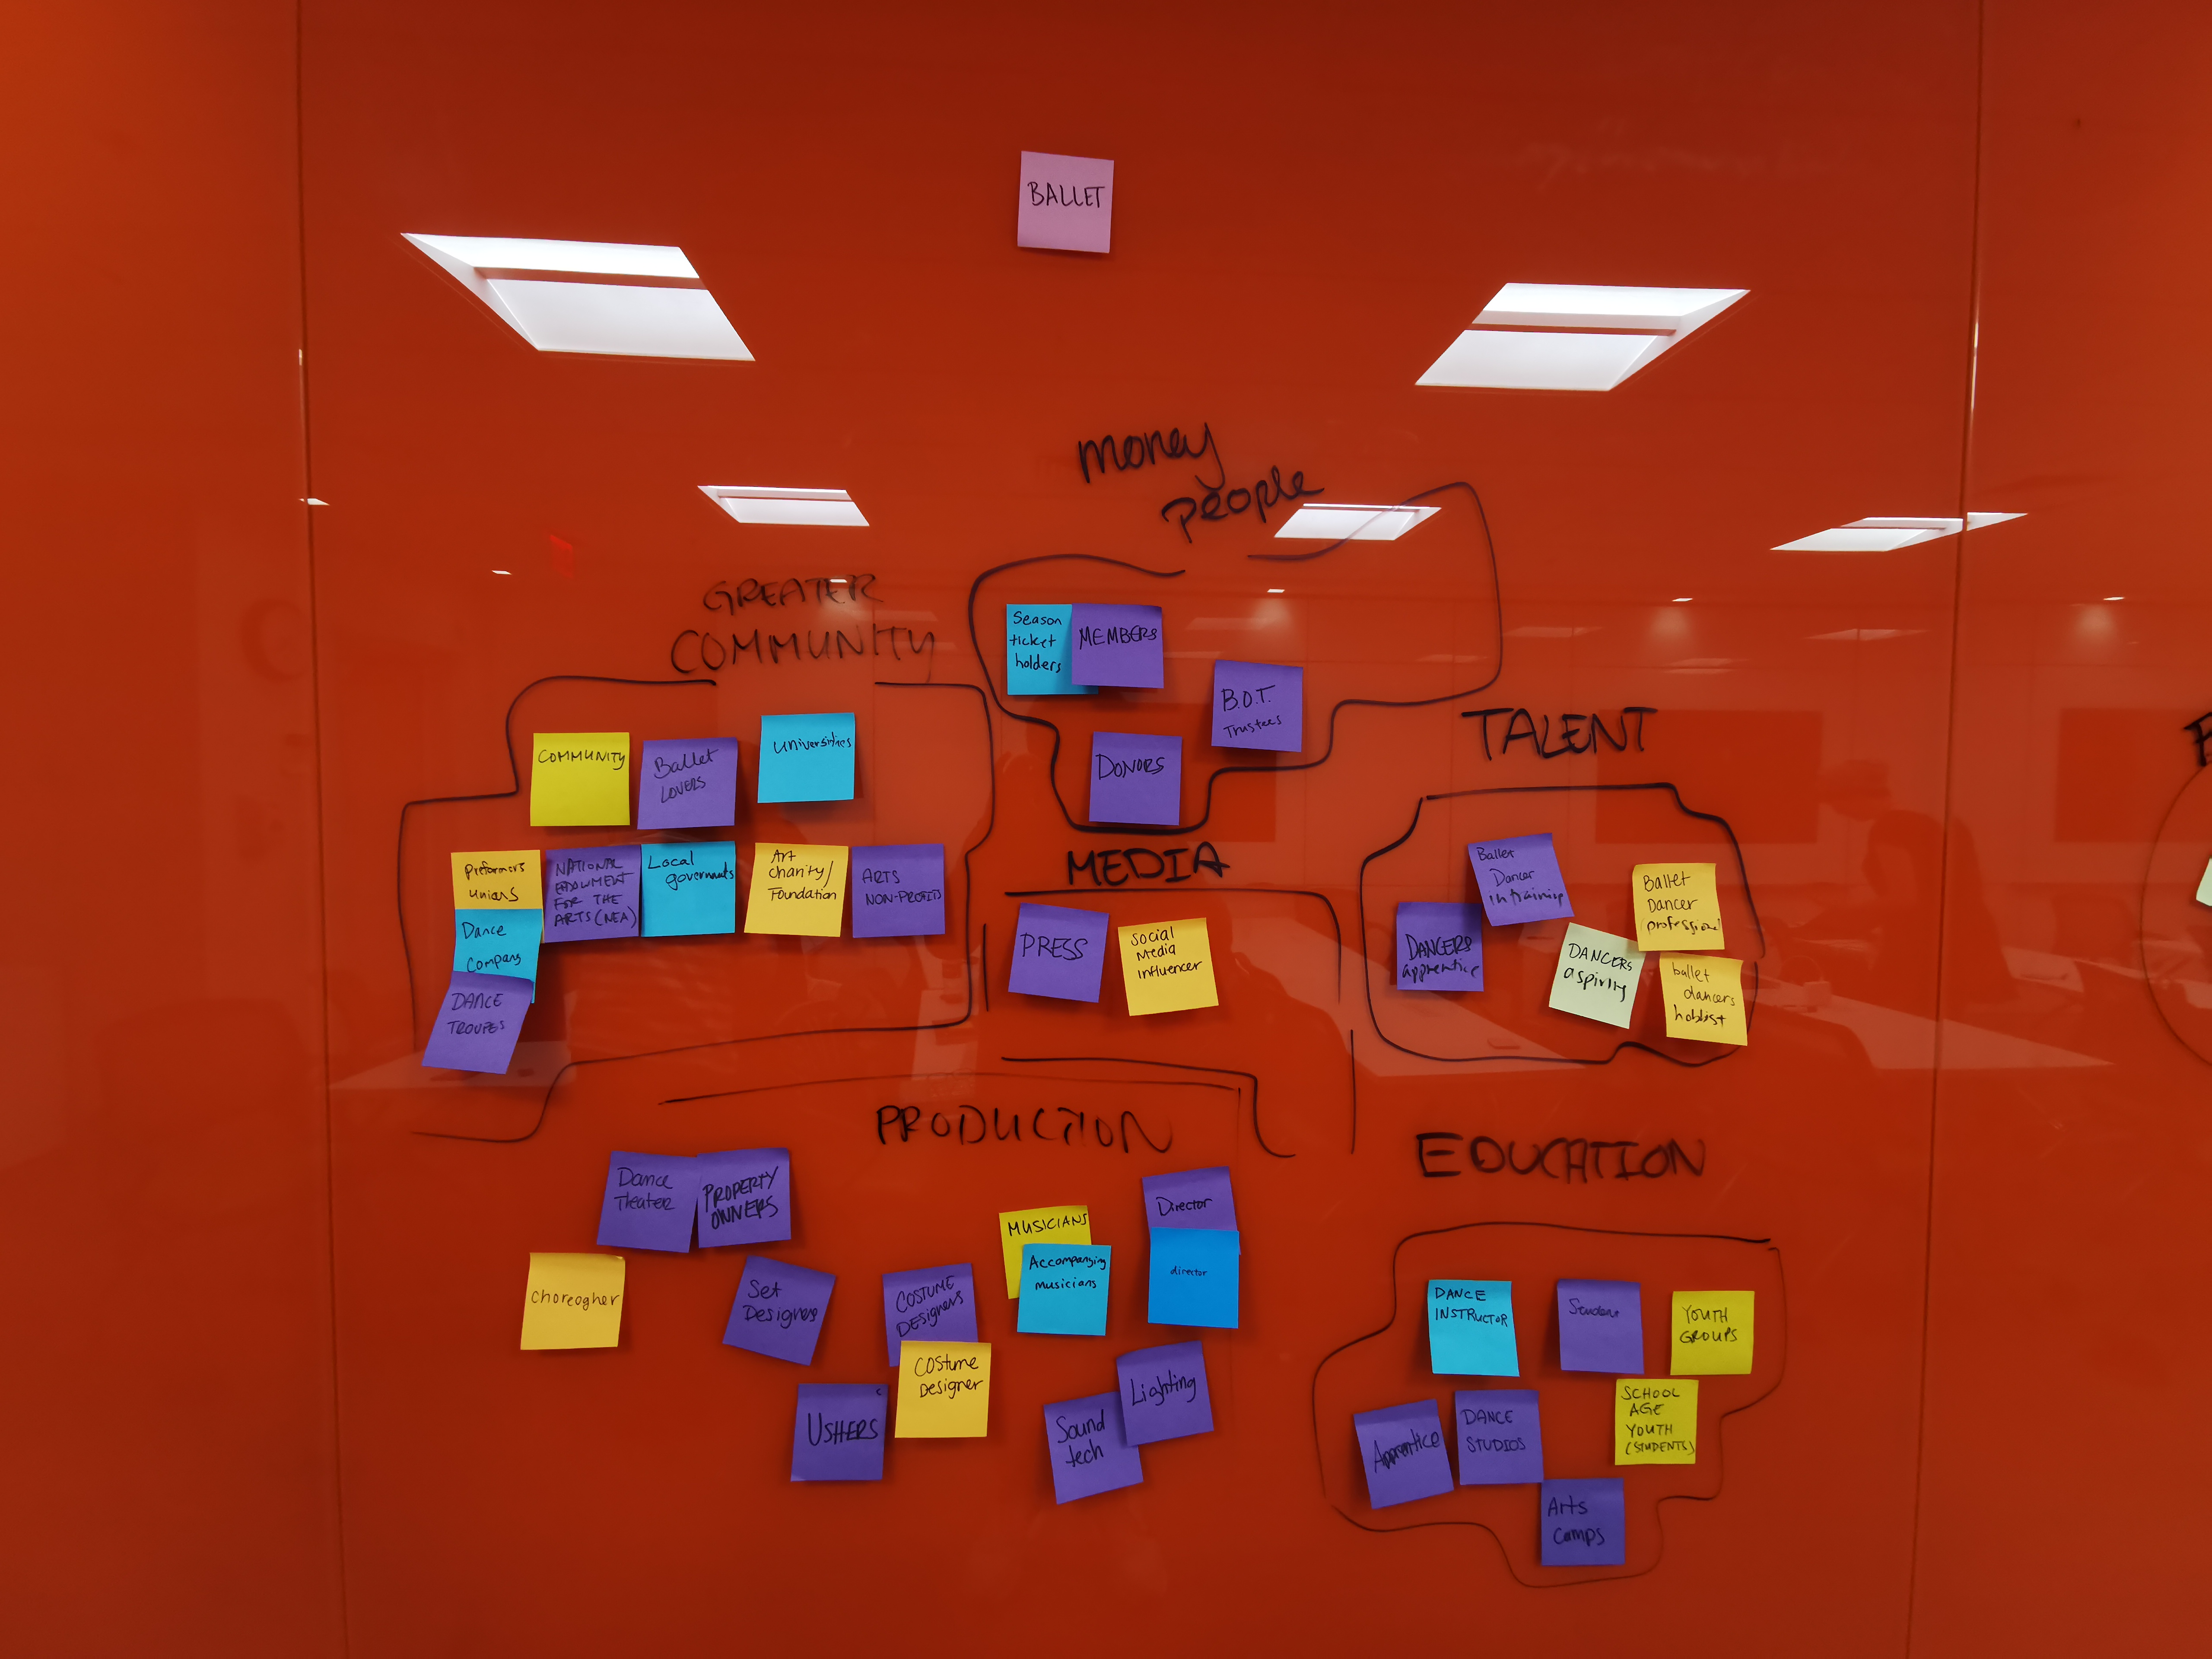 BALLET
money
people
GREATER
COMMUNITY
Season
ticket
holders
MEMBERS
B.O.T.
Trustees
DONORS
COMMUNITY
Ballet
LOVERS
Universities
Preformors
Unions
NATIONAL
ENDOWMENT
FOR THE
ARTS (NEA)
Local
governants
Art
Charity/
Foundation
ARTS
NON-PROFITS
Dance
Company
DANCE
TROUPES
MEDIA
PRESS
Social
Media
Influencer
TALENT
Ballet
Dancer
in training
Ballet
Dancer
professional
DANCERS
apprentice
DANCERS
aspiring
ballet
dancers
hobbist
PRODUCTION
Dance
Theater
PROPERTY
OWNERS
Director
director
MUSICIANS
Accompanying
musicians
Choreogher
Set
Designers
COSTUME
DESIGNERS
COStume
Designer
USHERS
Sound
tech
Lighting
EDUCATION
DANCE
INSTRUCTOR
Student
YOUTH
GROUPS
SCHOOL
AGE
YOUTH
(STUDENTS)
Apprentice
DANCE
STUDIOS
Arts
Camps